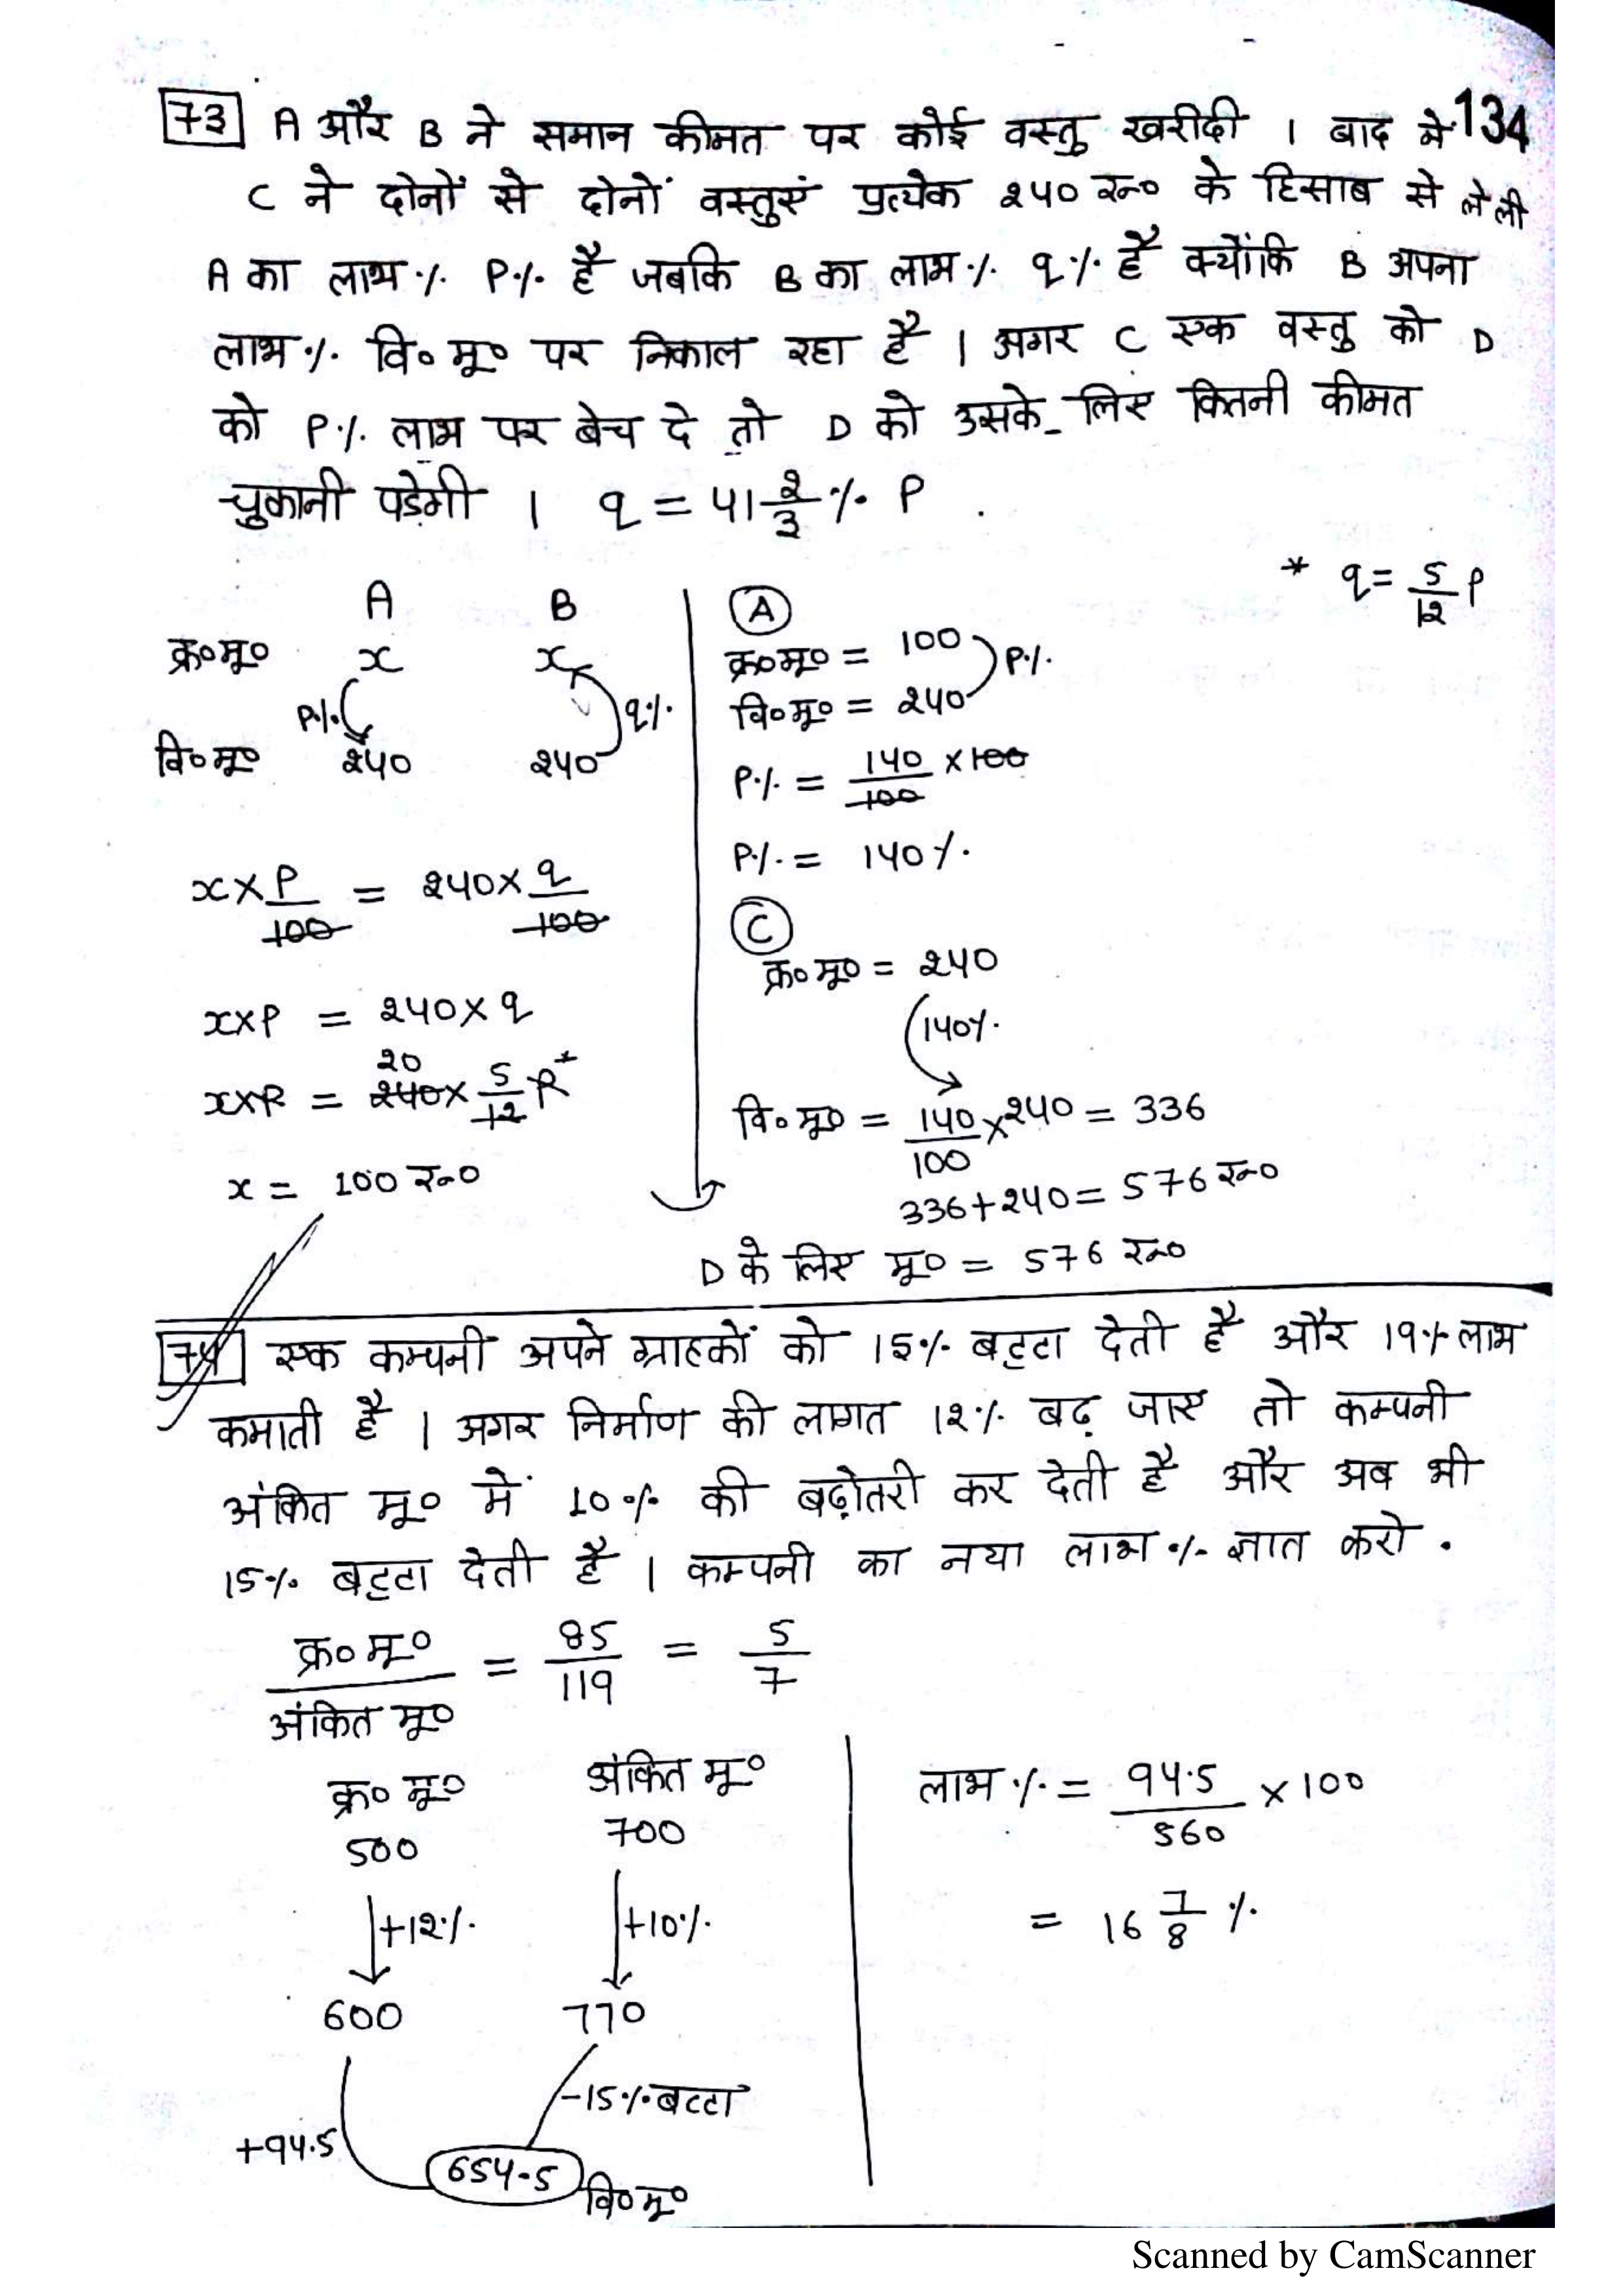 73 A और B ने समान कीमत पर कोई वस्तु खरीदी । बाद मे 134
C ने दोनों से दोनों वस्तुएं प्रत्येक 240 रु० के हिसाब से ले ली
A का लाभ % P% है जबकि B का लाभ % q% है क्योंकि B अपना
लाभ % वि० मू० पर निकाल रहा है । अगर C एक वस्तु को D
को P% लाभ पर बेच दे तो D को उसके लिए कितनी कीमत
चुकानी पड़ेगी । q = 41 2/3 % P .
* q = 5/12 P
A B
क्र०मू० x x
P% q%
वि०मू० 240 240
x × P/100 = 240 × q/100
x×P = 240 × q
20
x×P = 240 × 5/12 P *
x = 100 रु०
A
क्र०मू० = 100
P%
वि०मू० = 240
P% = 140/100 × 100
P% = 140%.
C
क्र०मू० = 240
140%
वि०मू० = 140/100 × 240 = 336
336 + 240 = 576 रु०
D के लिए मू० = 576 रु०
74 एक कम्पनी अपने ग्राहकों को 15% बट्टा देती है और 19% लाभ
कमाती है । अगर निर्माण की लागत 12% बढ़ जाए तो कम्पनी
अंकित मू० में 10% की बढ़ोतरी कर देती है और अब भी
15% बट्टा देती है । कम्पनी का नया लाभ % ज्ञात करो .
क्र० मू०/अंकित मू० = 85/119 = 5/7
क्र० मू० अंकित मू०
500 700
+12% +10%
600 770
-15% बट्टा
+94.5 654.5 वि०मू०
लाभ % = 94.5/560 × 100
= 16 7/8 %
Scanned by CamScanner